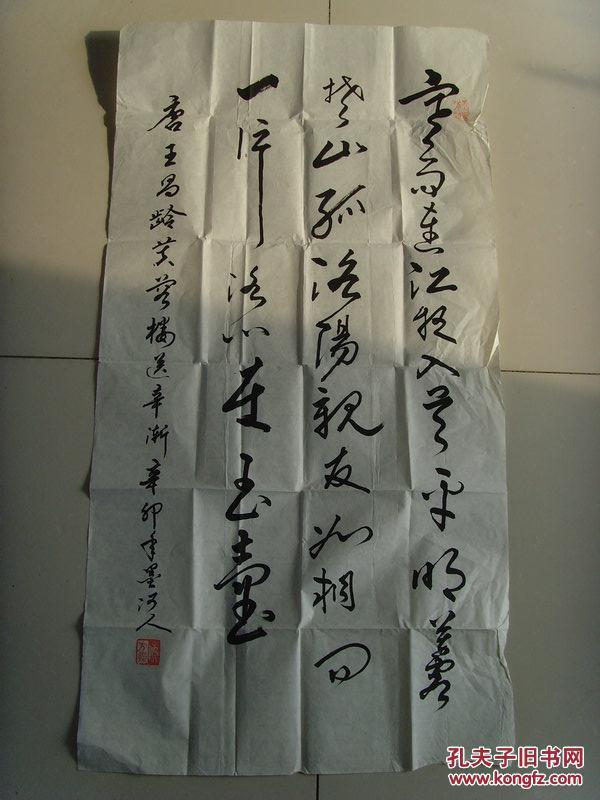 寒雨連江夜入吴平明送客
楚山孤洛陽親友如相問
一片冰心在玉壺
唐王昌齡芙蓉樓送辛漸 辛卯年墨河人
孔夫子旧书网
www.kongfz.com